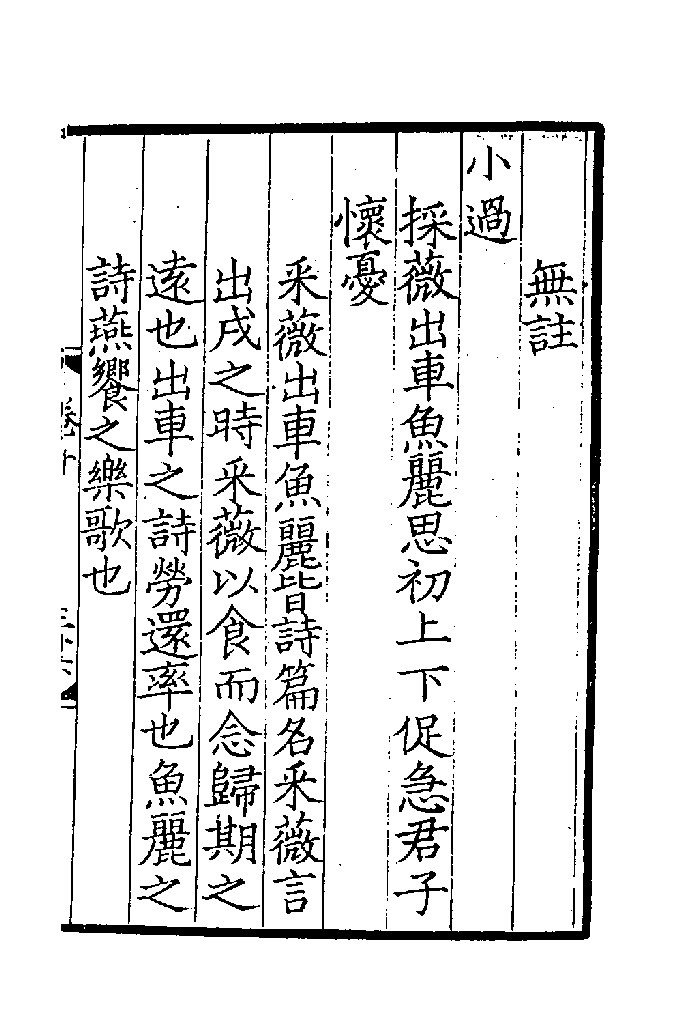 無註
小過
採薇出車魚麗思初上下促急君子
懷憂
采薇出車魚麗皆詩篇名采薇言
出戍之時采薇以食而念歸期之
遠也出車之詩勞還率也魚麗之
詩燕饗之樂歌也
卷十